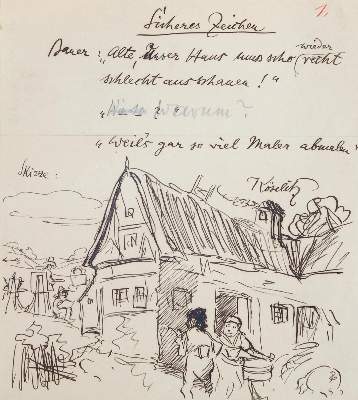 Sicheres Zeichen
1.
Bauer: „Alte, Unser Haus muss scho wieder recht
schlecht ausschauen!"
" Warum?
„Weil's gar so viel Maler abmalen"
Skizze: